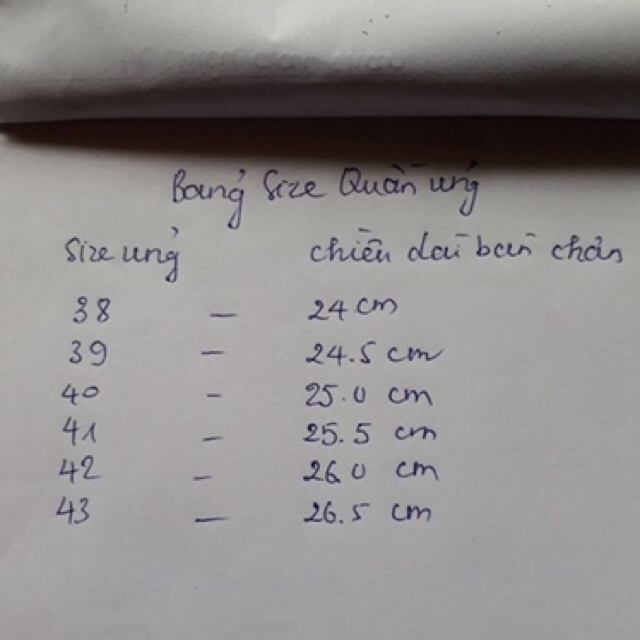 Bảng Size Quần ủng
Size ủng chiều dài bàn chân
38 — 24 cm
39 — 24.5 cm
40 - 25.0 cm
41 - 25.5 cm
42 - 26.0 cm
43 — 26.5 cm